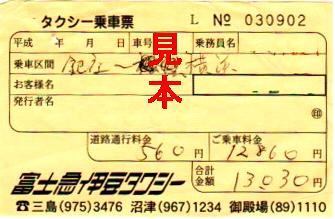 タクシー乗車票 L № 030902
平成 年 月 日 車号 乗務員名
乗車区間 〜 横浜
お客様名
発行者名 印
見本
道路通行料金 ご乗車料金
560円 12860円
合計金額 13030円
富士急伊豆タクシー
☎三島(975)3476 沼津(967)1234 御殿場(89)1110